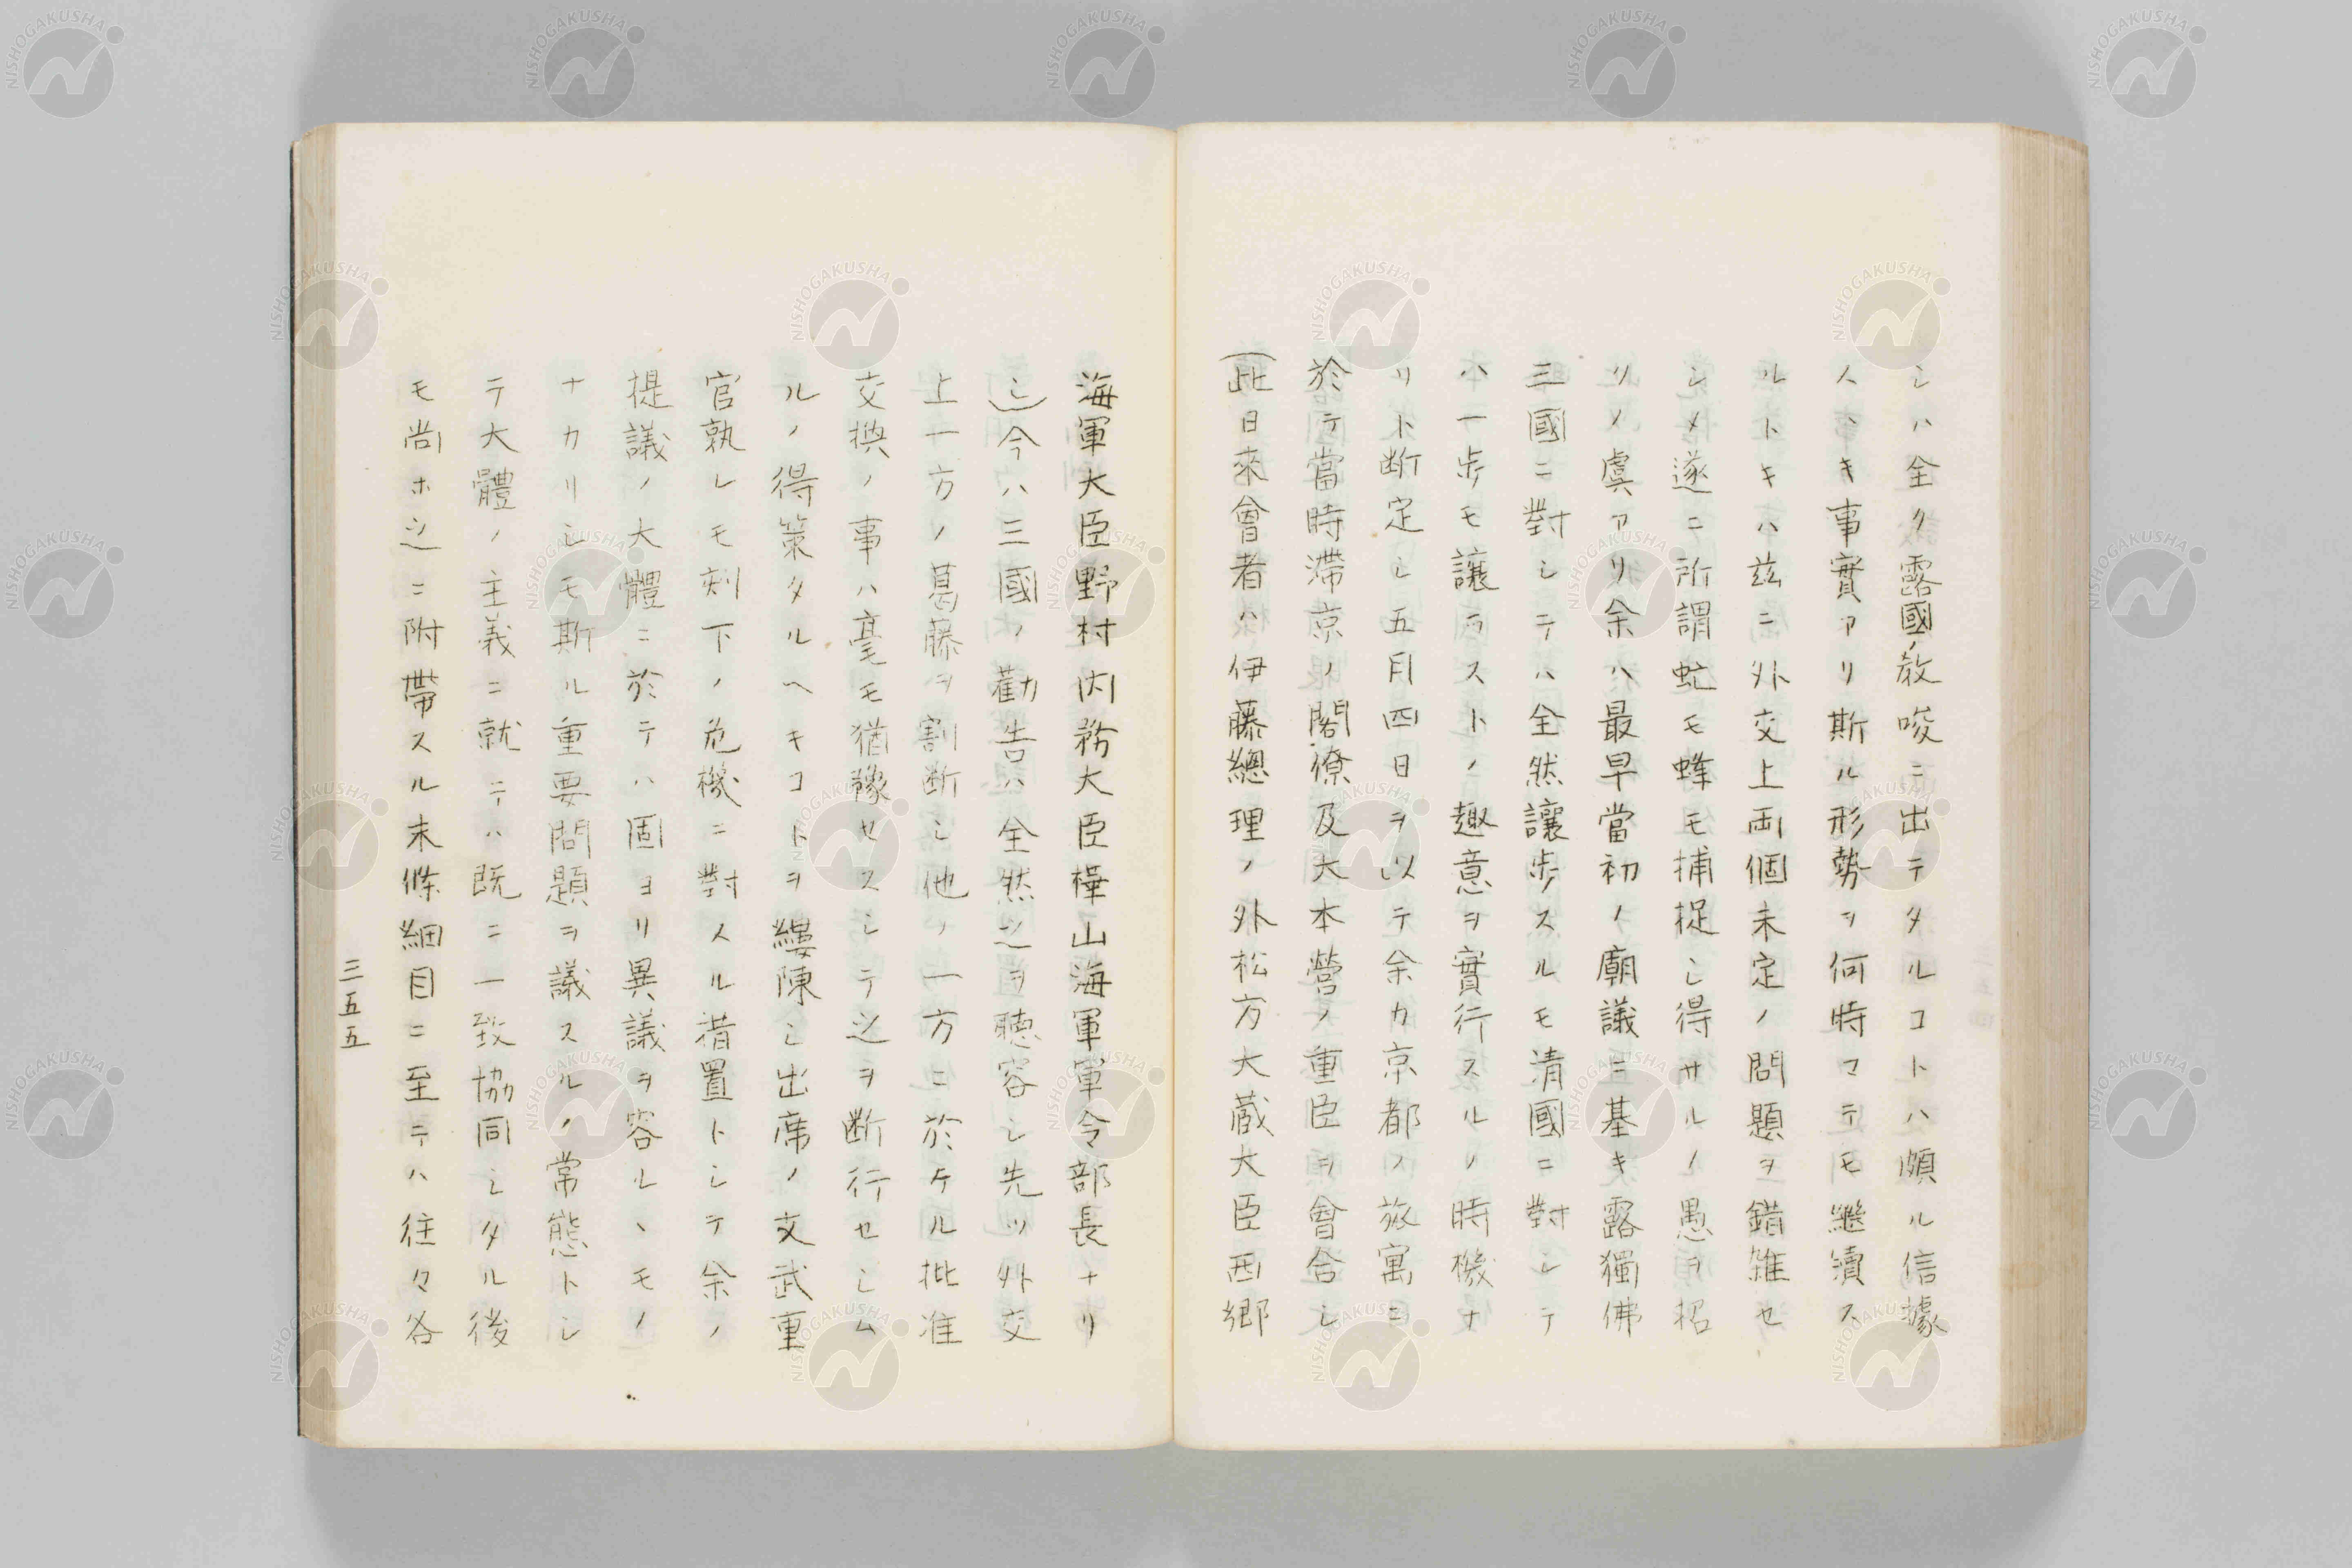 シハ全ク露國ノ敎唆ニ出テタルコトハ頗ル信據
スヘキ事實アリ斯ル形勢ヲ何時マテモ繼續ス
ルトキハ玆ニ外交上両個未定ノ問題ヲ錯雑セ
シメ遂ニ所謂虻モ蜂モ捕捉シ得サルノ愚ヲ招
クノ虞アリ余ハ最早當初ノ廟議ニ基キ露獨佛
三國ニ對シテハ全然讓歩スルモ清國ニ對シテ
ハ一歩モ讓ラストノ趣意ヲ實行スルノ時機ナ
リト断定シ五月四日ヲ以テ余カ京都ノ旅寓ニ
於テ當時滞京ノ閣僚及大本營ノ重臣ヲ會合シ
(此日來會者ハ伊藤總理ノ外松方大蔵大臣西郷
海軍大臣野村内務大臣樺山海軍軍令部長ナリ
シ)今ハ三國ノ勸告ハ全然之ヲ聴容シ先ツ外交
上一方ノ葛藤ヲ割断シ他ノ一方ニ於ケル批准
交換ノ事ハ毫モ猶豫セスシテ之ヲ断行セシム
ルノ得策タルヘキコトヲ縷陳シ出席ノ文武重
官孰レモ刻下ノ危機ニ對スル措置トシテ余ノ
提議ノ大體ニ於テハ固ヨリ異議ヲ容ルヽモノ
ナカリシモ斯ル重要問題ヲ議スルノ常態トシ
テ大體ノ主義ニ就テハ既ニ一致協同シタル後
モ尚ホ之ニ附帶スル末條細目ニ至テハ往々各
三五五
NISHOGAKUSHA